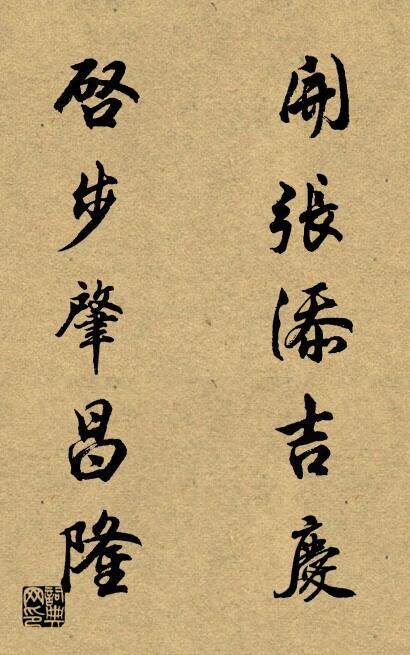 開張添吉慶
啓步肇昌隆
詞典網印